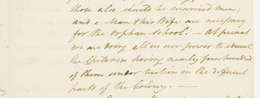 those also should be married men,
and a Man & his Wife are necessary
for the Orphan School. At present
we are doing all in our power to
the Children having nearly four hundred
of them under tuition in the different
parts of the Colony. —